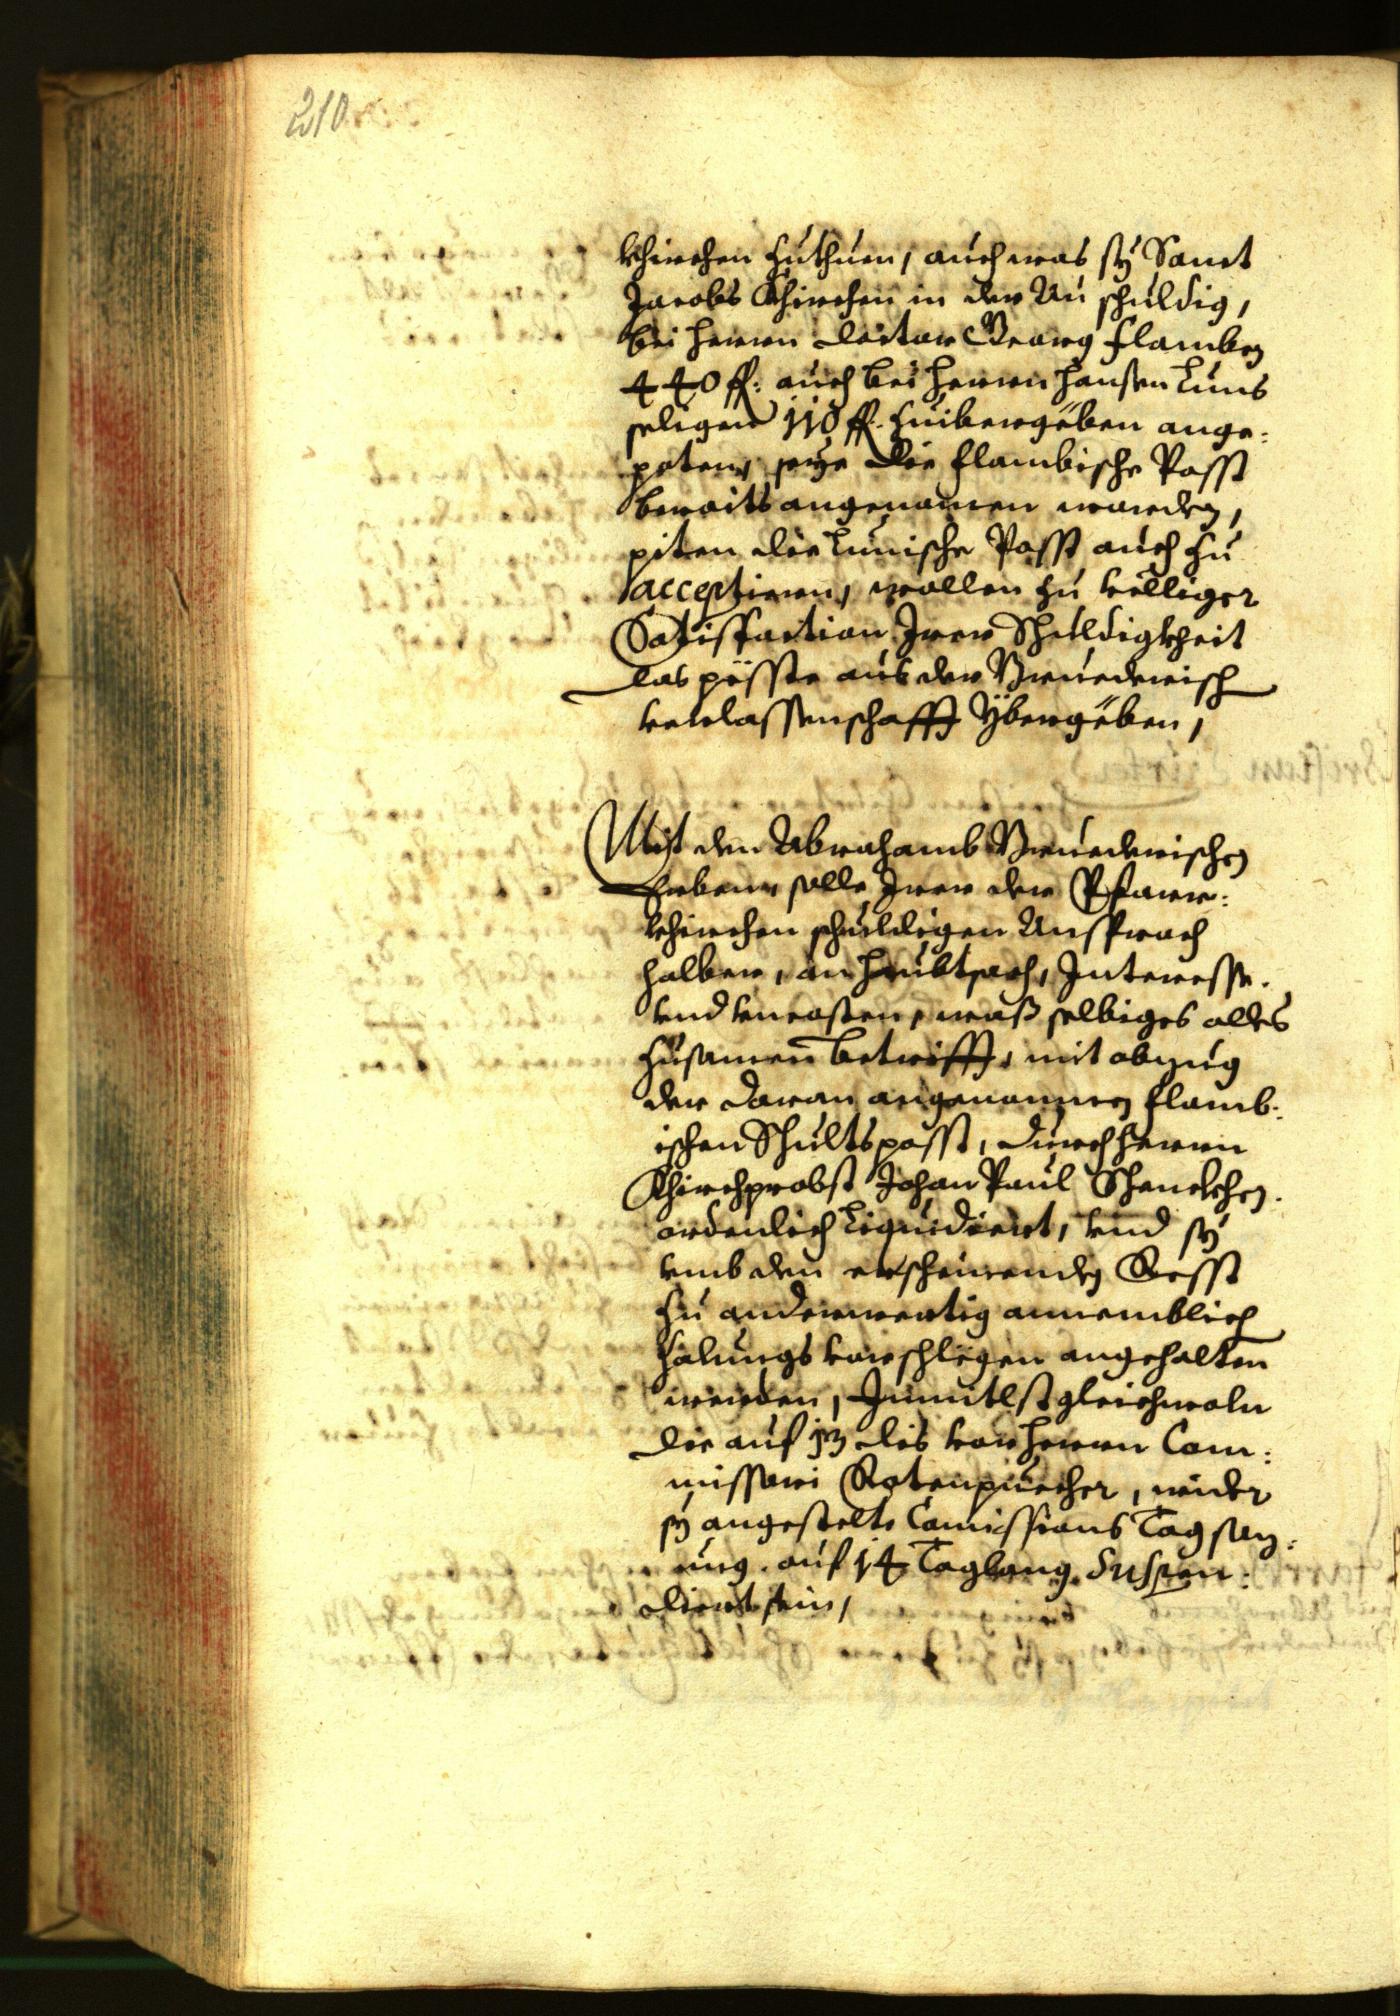 210
khirchen zuthuen, auch was sÿ Sanct
Jacobs Khirchen in der Au schuldig,
bei herrn doctor Georg Flamben
440 fl: auch bei herrn Hansen Luns
seligen 110 fl. zuibergeben ange:
poten, seÿe die Flambische Posst
bereits angenomen worden,
piten die Lunische Posst auch zu
acceptieren, wollen zu völliger
Satisfaction Irer Schuldigkheit
das pösste aus der Pruederisch
verlassenschafft ÿbergeben,
Mit den Abrahamb Pruederischen
Erben, solle Irer der Pfarr:
khirchen schuldigen Ansprach
halber, an haubtsach, Interesse.
vnd vncossten, waß selbiges alles
zusamen betrifft, mit abzug
der daran angenomnen Flamb:
ischen Schultsposst, durch herrn
Khirchprobst Johan Paul Schenckhen.
ordenlich Liquidiert, vnd sÿ
vmb den erscheinenden Resst
zu anderwertig annemblich
Zalungs vorschlegen angehalten
werden, Inmitlst gleichwoln
die auf 13 dis vor herrn Com:
missari Rotenpuecher, wider
sÿ angestelte Comissions Tagsaz:
ung. auf 14 Taglang. Suspen:
diert sein,